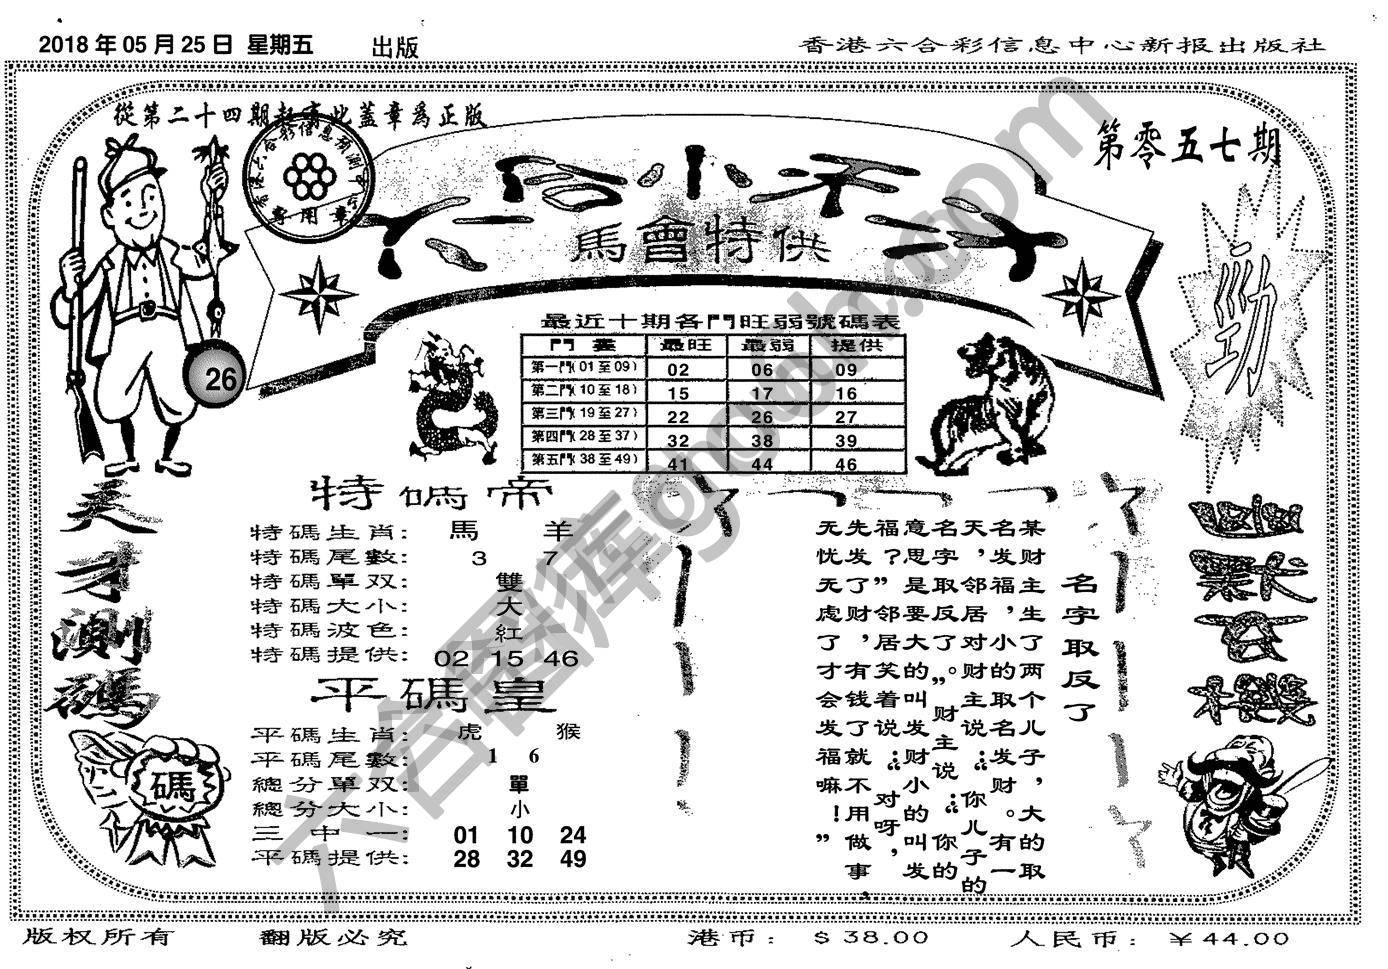 2018 年 05 月 25 日 星期五 出版
香港六合彩信息中心新报出版社
從第二十四期起寄此蓋章爲正版
第零五七期
馬會特供
勁
26
最近十期各門旺弱號碼表
門 最旺 最弱 提供
第一門(01至09) 02 06 09
第二門(10至18) 15 17 16
第三門(19至27) 22 26 27
第四門(28至37) 32 38 39
第五門(38至49) 41 44 46
天才測碼
特碼帝
特碼生肖: 馬 羊
特碼尾數: 3 7
特碼單双: 雙
特碼大小: 大
特碼波色: 紅
特碼提供: 02 15 46
平碼皇
平碼生肖: 虎 猴
平碼尾數: 1 6
總分單双: 單
總分大小: 小
三中一: 01 10 24
平碼提供: 28 32 49
碼
名字取反了
某财主生了两个儿子，大的取
名发福，小的取名发财。有一
天，邻居对财主说：“你儿子的
名字取反了。”财主说：“你的
意思是要大的叫发财小的叫发
福？”邻居笑着说：“对呀，
先发了财，有钱了就不用做事，
无忧无虑了才会发福嘛！”
六合图库ghodh.com
版权所有 翻版必究 港币: $ 38.00 人民币: ￥44.00